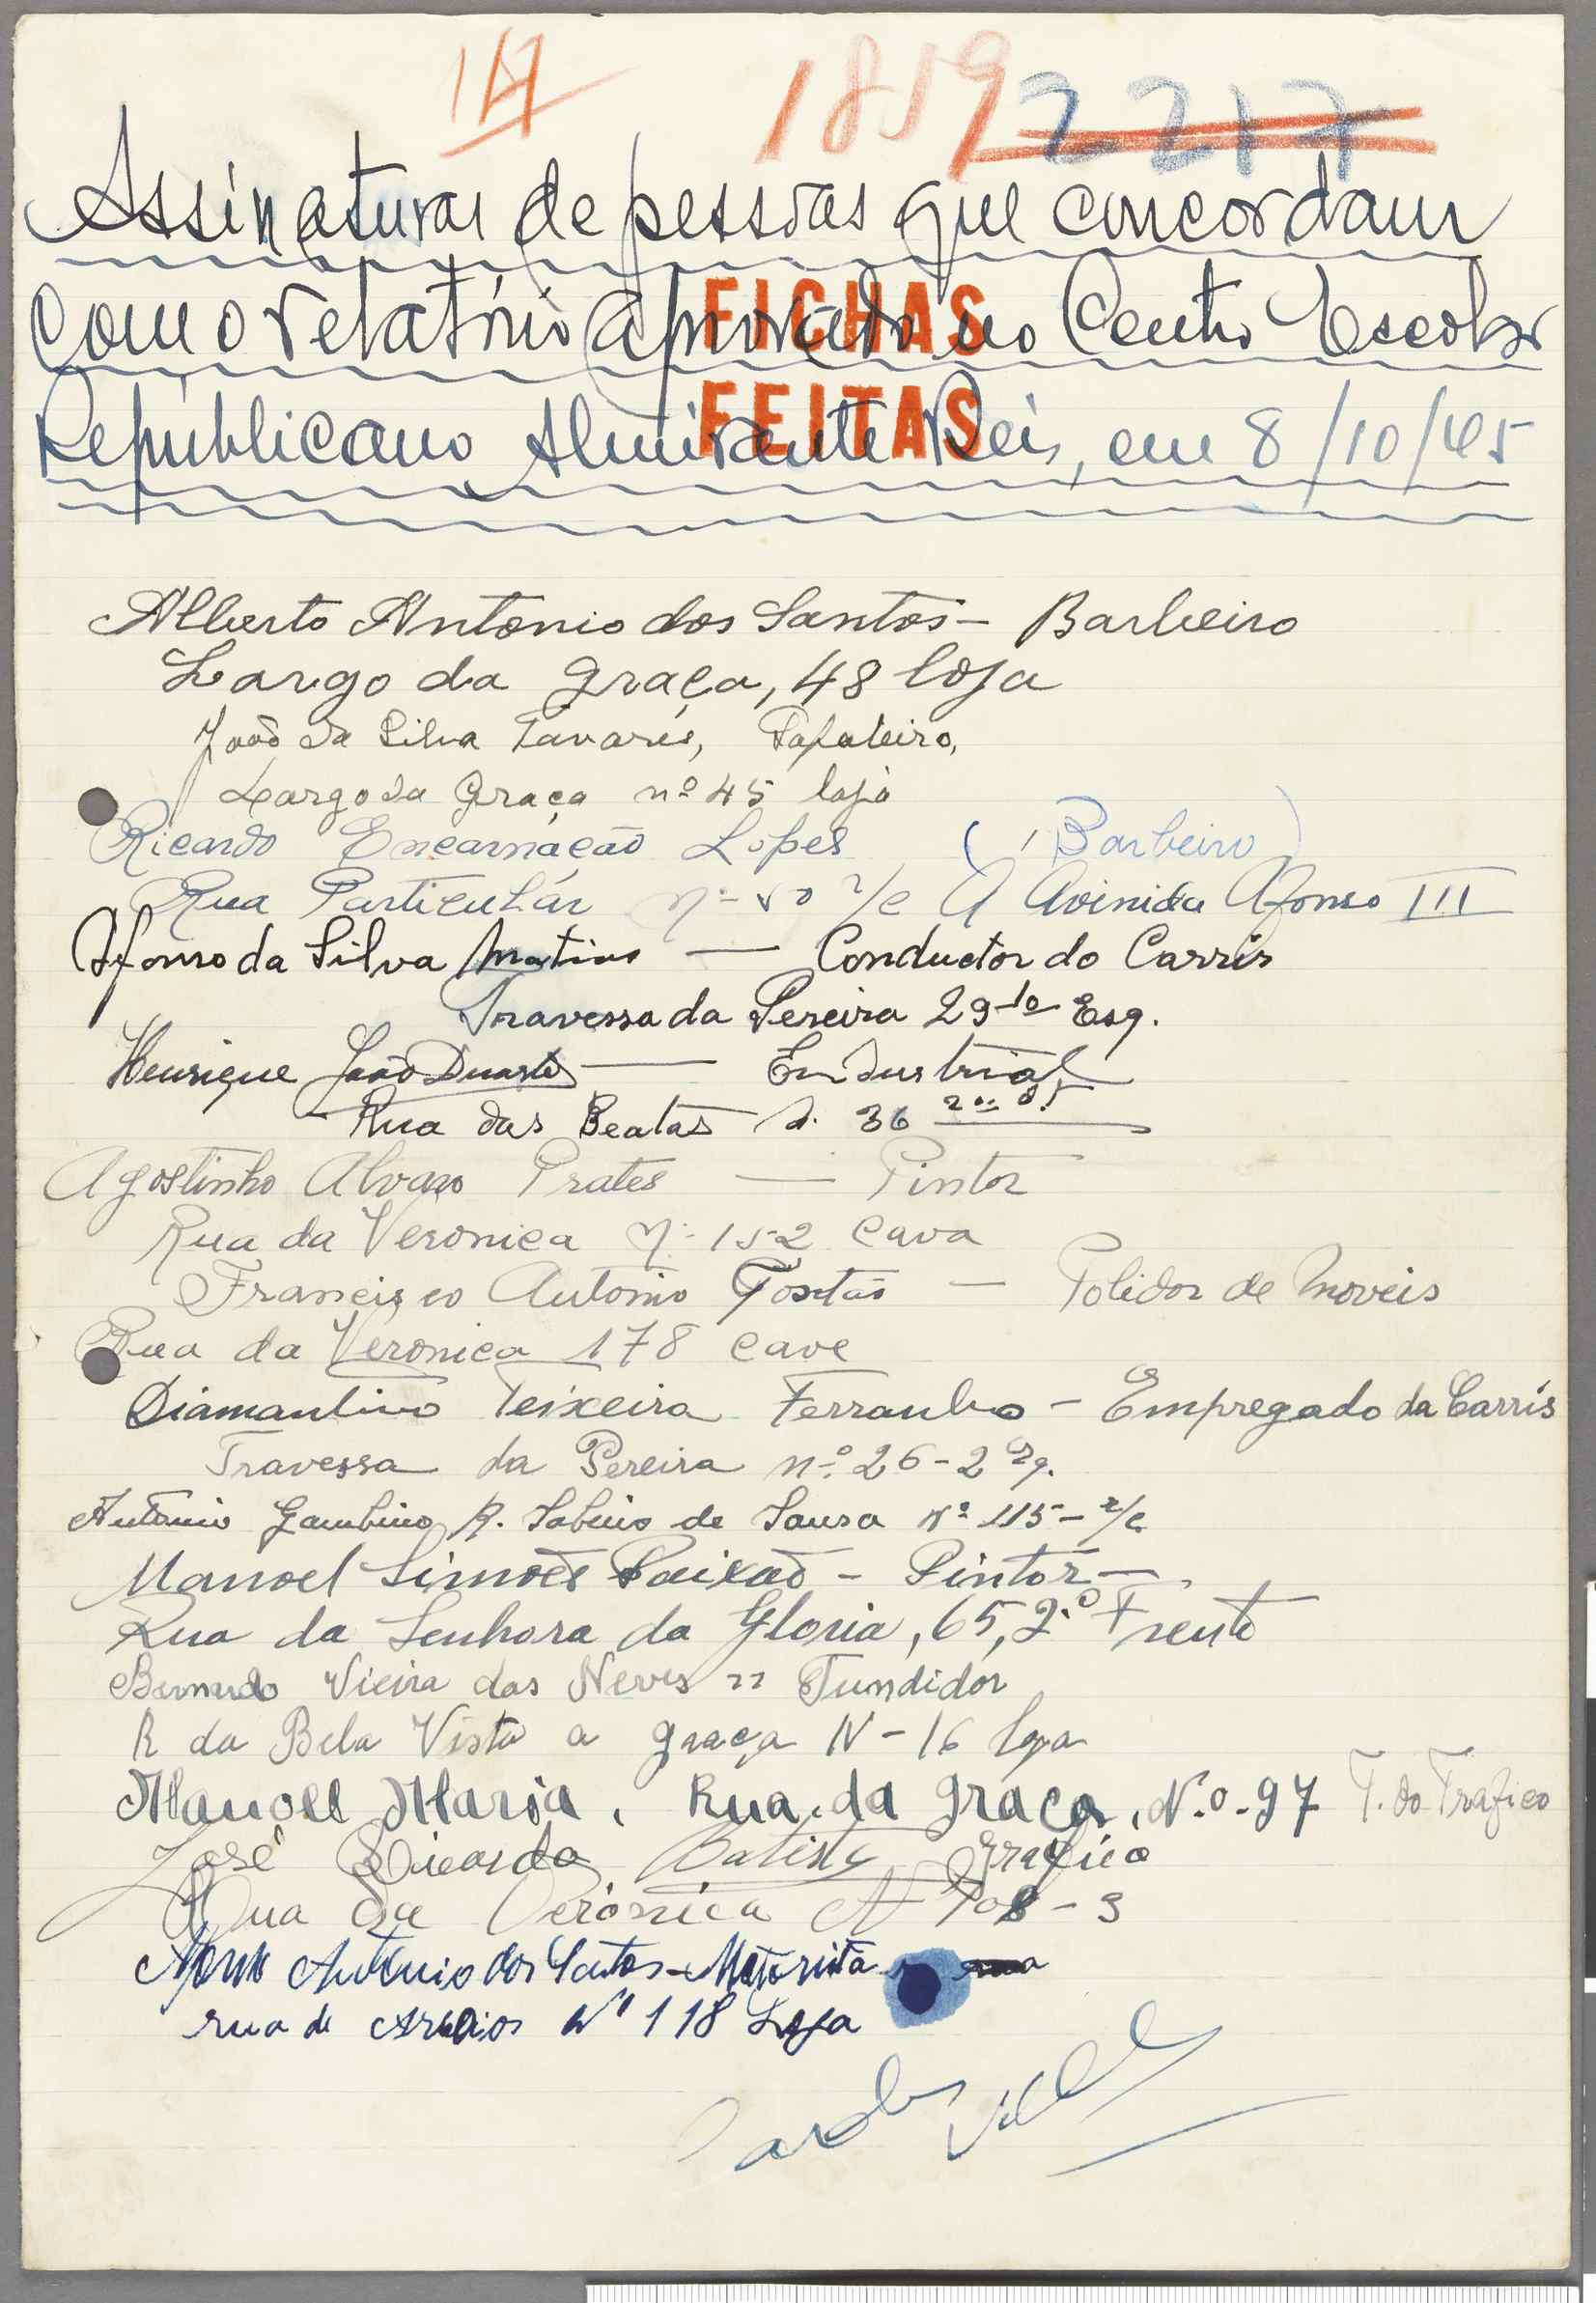 14 1819 2217
Assinaturas de pessoas que concordam
com o relatório aprovado no Centro Escolar
FICHAS
Républicano Almirante Reis, em 8/10/45
FEITAS
Alberto Antonio dos Santos - Barbeiro
Largo da Graça, 48 loja
João da Silva Tavares, Sapateiro,
Largo da Graça nº 45 loja
Ricardo Encarnação Lopes (Barbeiro)
Rua Particulár nº 50 r/c Á Avinida Afonso III
Afonso da Silva Martins — Conductor do Carris
Travessa da Pereira 29 1º Esq.
Henrique João Duarte — Endustrial
Rua das Beatas 36 2º
Agostinho Alvaro Prates — Pintor
Rua da Veronica Nº 152 Cava
Francisco Antonio — Polidor de Moveis
Rua da Veronica 178 Cave
Diamantino Teixeira Ferranho - Empregado da Carris
Travessa da Pereira nº 26-2 Esq.
António Gambino R. Sabino de Sousa Nº 115 - r/c
Manoel Simões Paixão - Pintor -
Rua da Senhora da Gloria, 65, 2º Frente
Bernardo Vieira das Neves " Tundidor
R da Bela Vista a Graça N - 16 loja
Manoel Maria, Rua da Graça, N.o - 97 T. do Trafico
José Ricardo Batista Grafico
Rua da Verónica Nº 108 - 3
António dos Santos - Motorista
rua de Arroios Nº 118 Loja